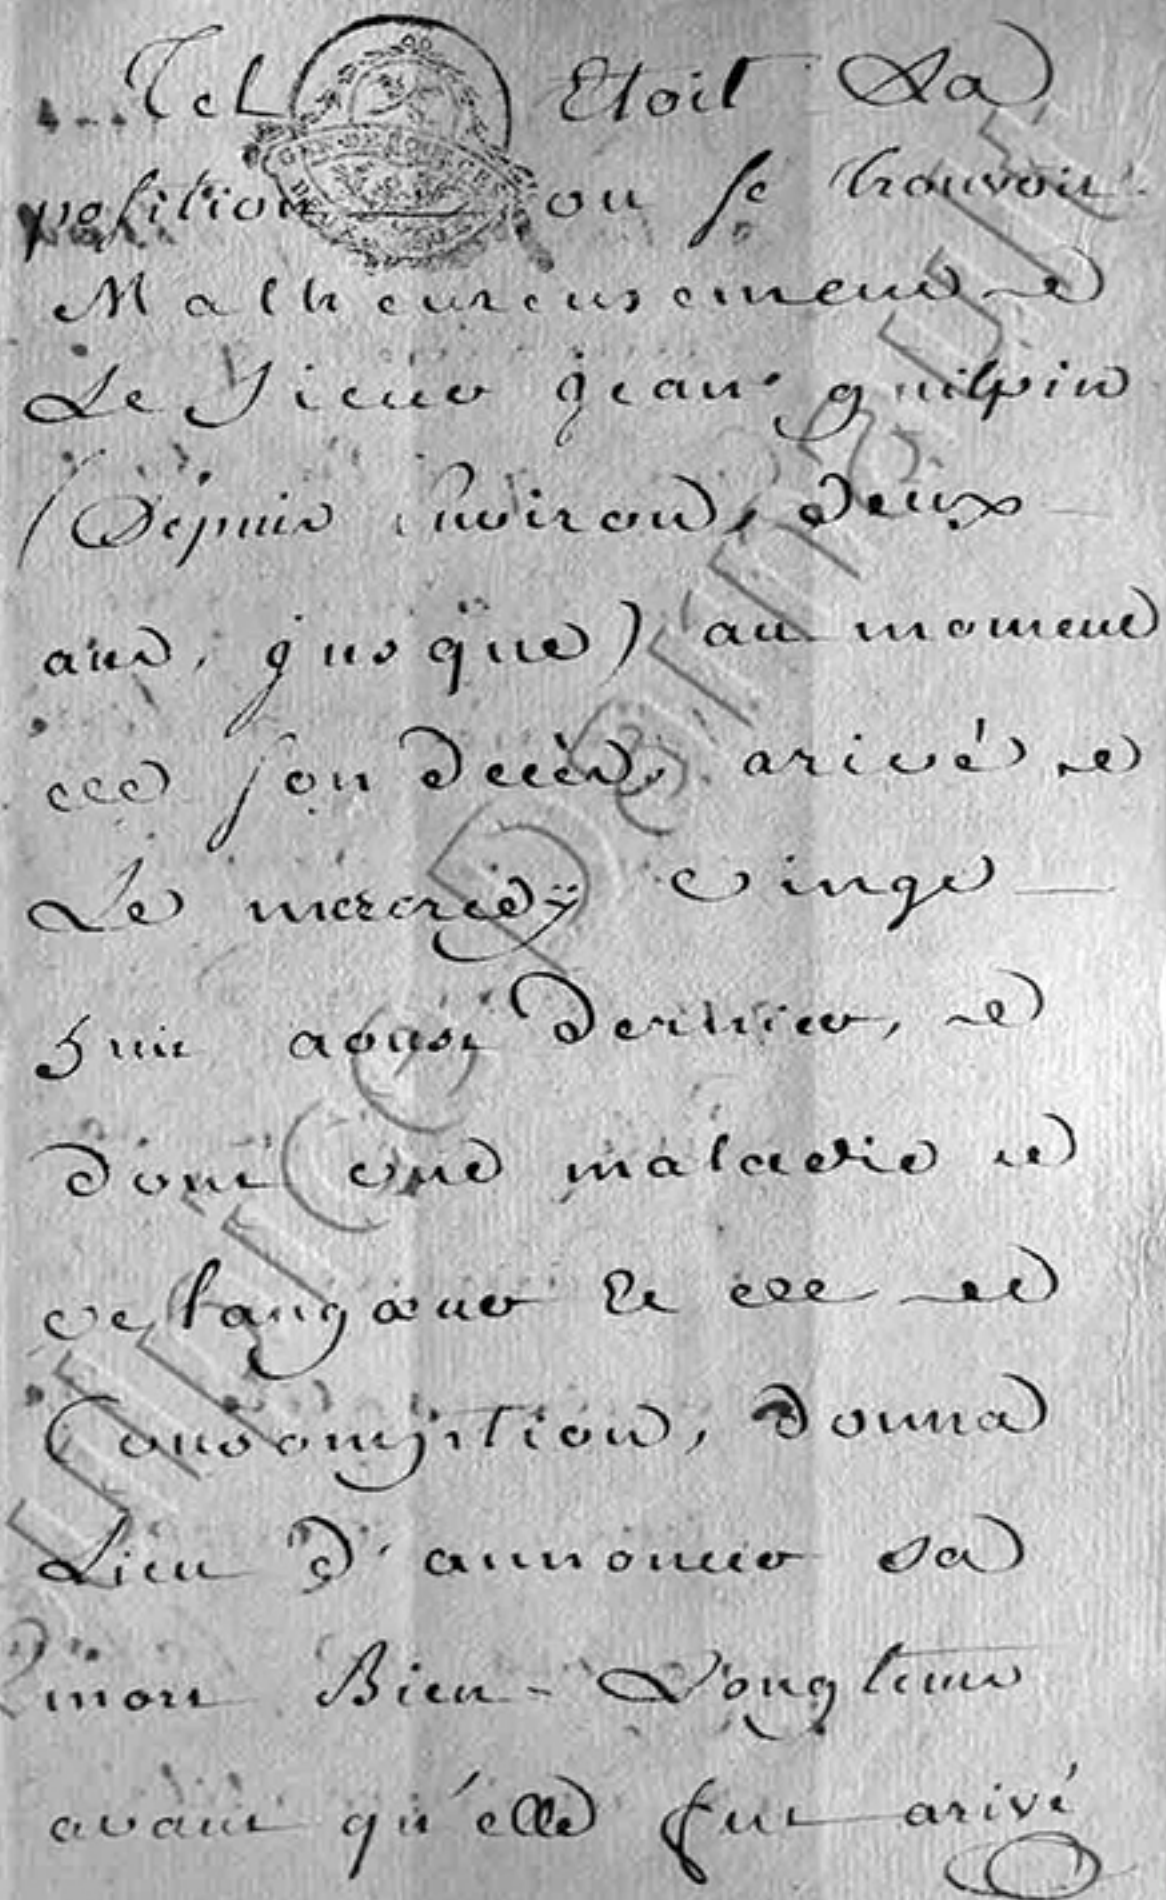 Tel Etoit La
position ou se trouvoit
Malheureusement
Le Sieur jean guilpin
(Depuis Environ, deux
ans, jusque) au moment
de son decès, arivé
Le mercredÿ vingt
huit aoust dernier,
dont une maladie
de langœur Et de
Consomption, donna
Lieu d'annoncer sa
mort Bien-Longtems
avant qu'elle fut arivé